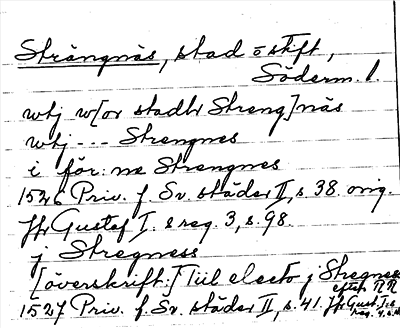 Strängnäs, stad o stift,
Söderm. l.
wtj w[or stadh Streng]näs
wtj --- Strengnes
i för:ne Strengnes
1526 Priv. f. Sv. städer II, s. 38. orig.
Jfr Gustaf I:s reg. 3, s. 98.
j Stregness
[överskrift:] Tiil electo j Stregnes
efter RR
1527 Priv. f. Sv. städer II, s. 41. Jfr Gust. I:s
reg. 4, s.